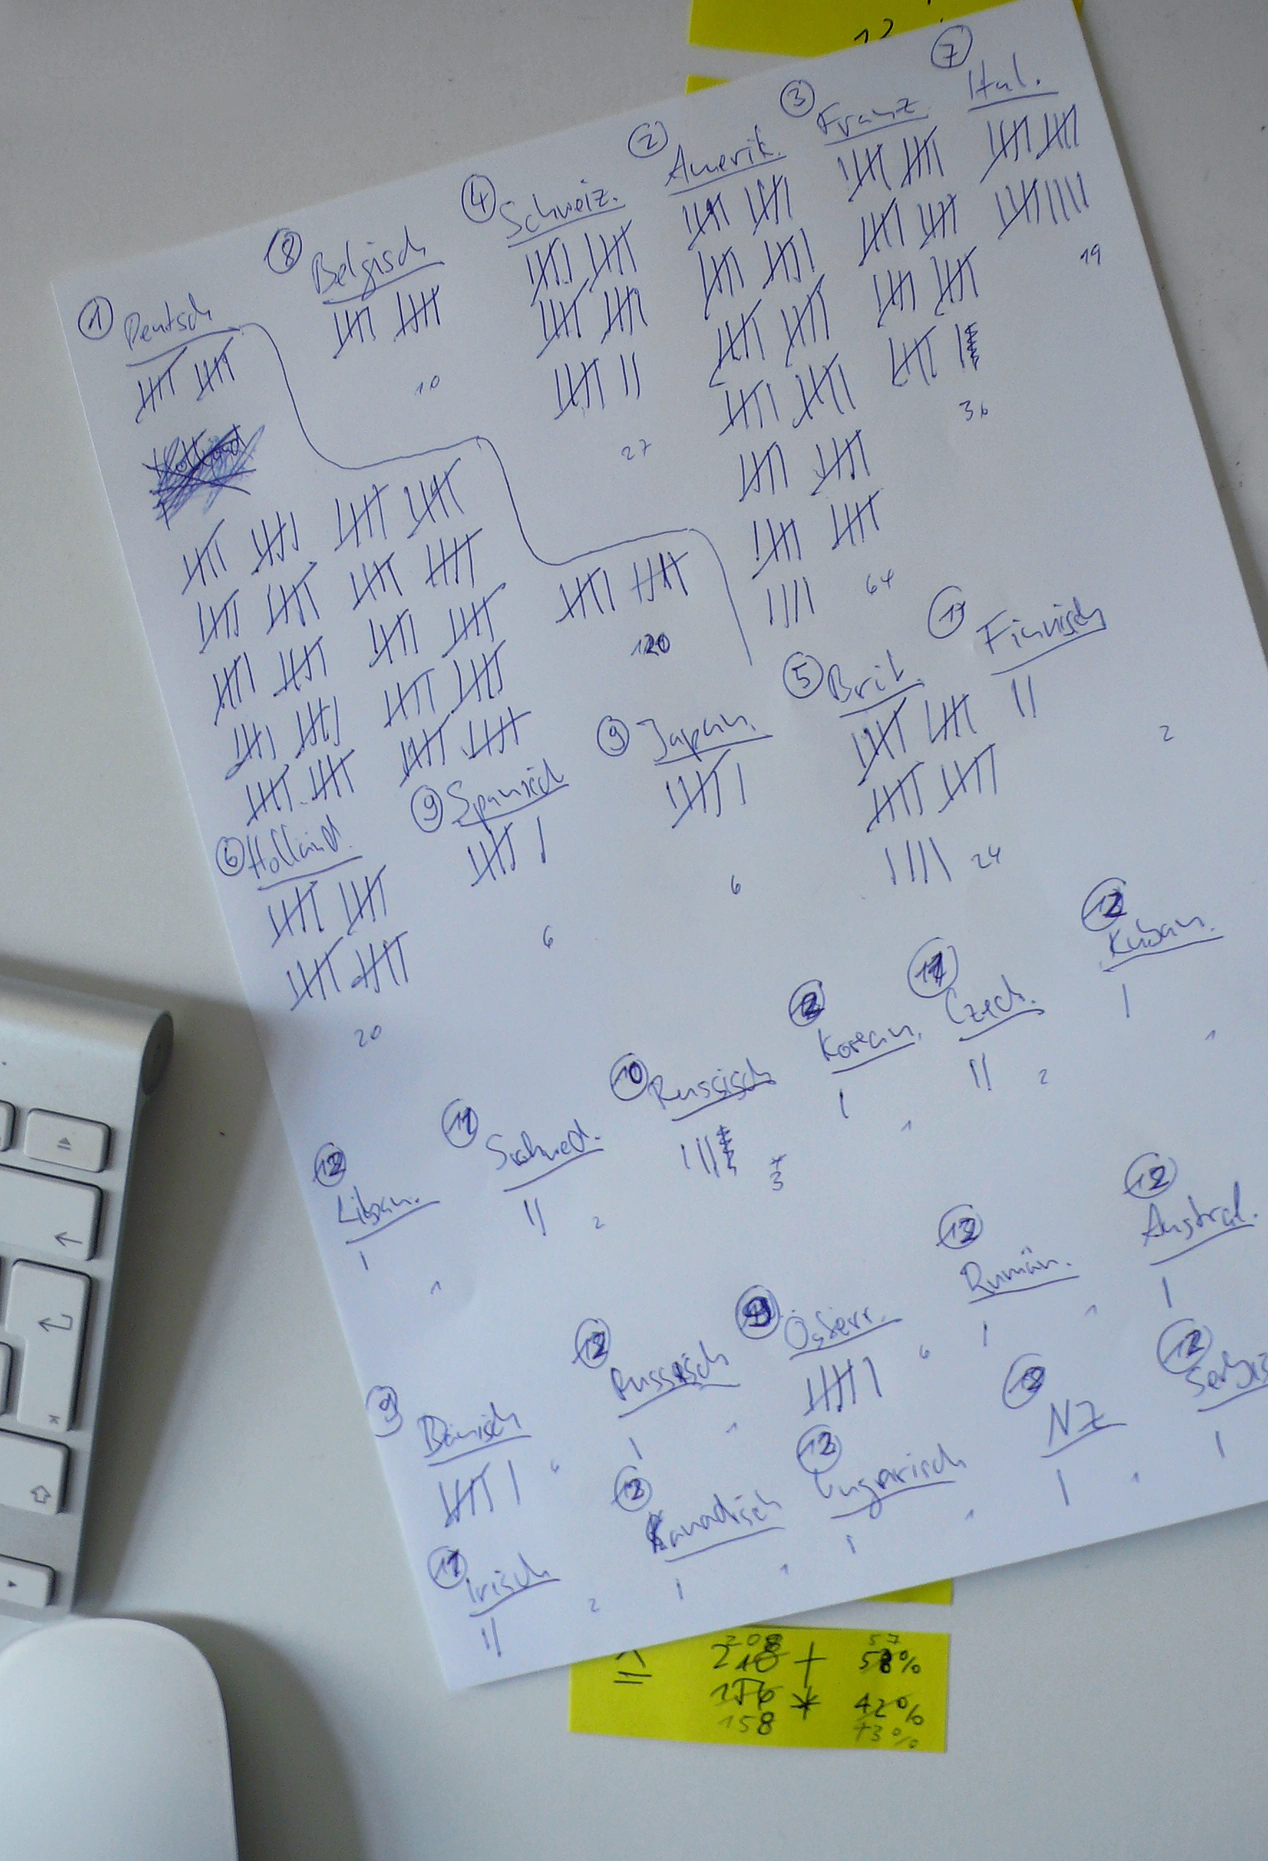 7
Ital.
3
Franz.
2
Amerik.
4
Schweiz.
8
Belgisch
1
Deutsch
19
10
27
36
64
120
11
Finnisch
2
5
Brit.
24
9
Japan.
6
9
Spanisch
6
6
Holländ.
20
12
Kuban.
1
11
Czech.
2
12
Korean.
1
10
Russisch
3
11
Schwed.
2
12
Liban.
1
12
Austral.
12
Rumän.
1
9
Österr.
6
12
Russisch
1
9
Dänisch
6
12
Serbis
12
NZ
1
12
Ungarisch
1
12
Kanadisch
1
11
Irisch
2
208 57
210 + 58%
156 * 42%
158 43%